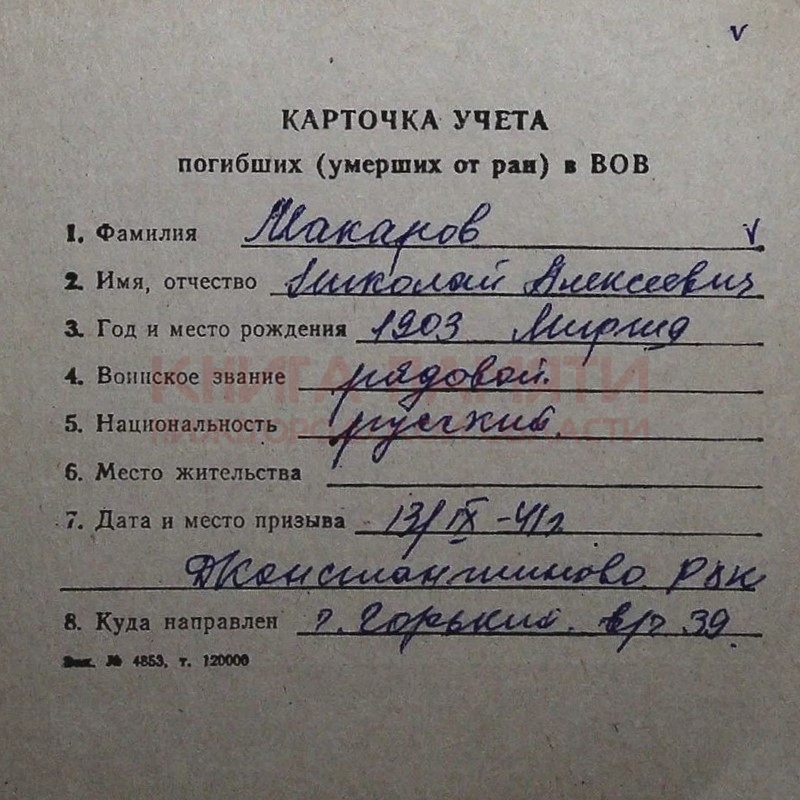 v
КАРТОЧКА УЧЕТА
погибших (умерших от ран) в ВОВ
1. Фамилия Макаров v
2. Имя, отчество Николай Алексеевич
3. Год и место рождения 1903
4. Воинское звание рядовой.
КНИГА ПАМЯТИ
5. Национальность русский.
НИЖЕГОРОДСКОЙ ОБЛАСТИ
6. Место жительства
7. Дата и место призыва 13/IX-41г
ДКонстантиново РВК
8. Куда направлен г. Горький. 39
Зак. № 4853, т. 120000